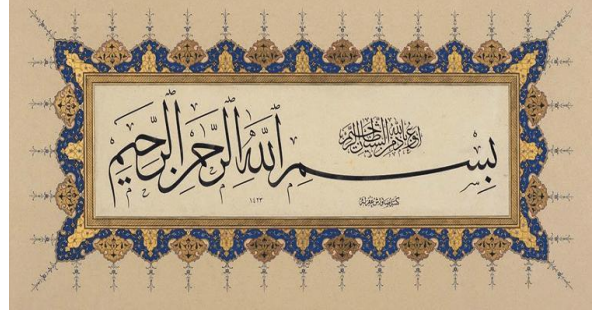 أعوذ بالله من الشيطان الرجيم
بسم الله الرحمن الرحيم
١٤٢٣